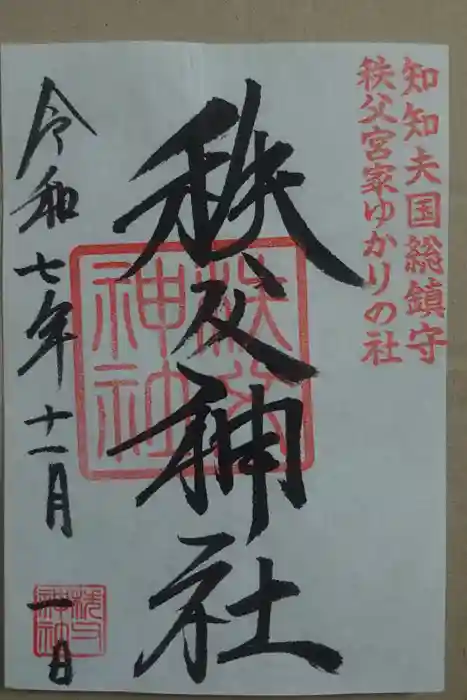 知知夫国総鎮守
秩父宮家ゆかりの社
秩父神社
秩父
神社
令和七年十一月
一日
秩父
神社